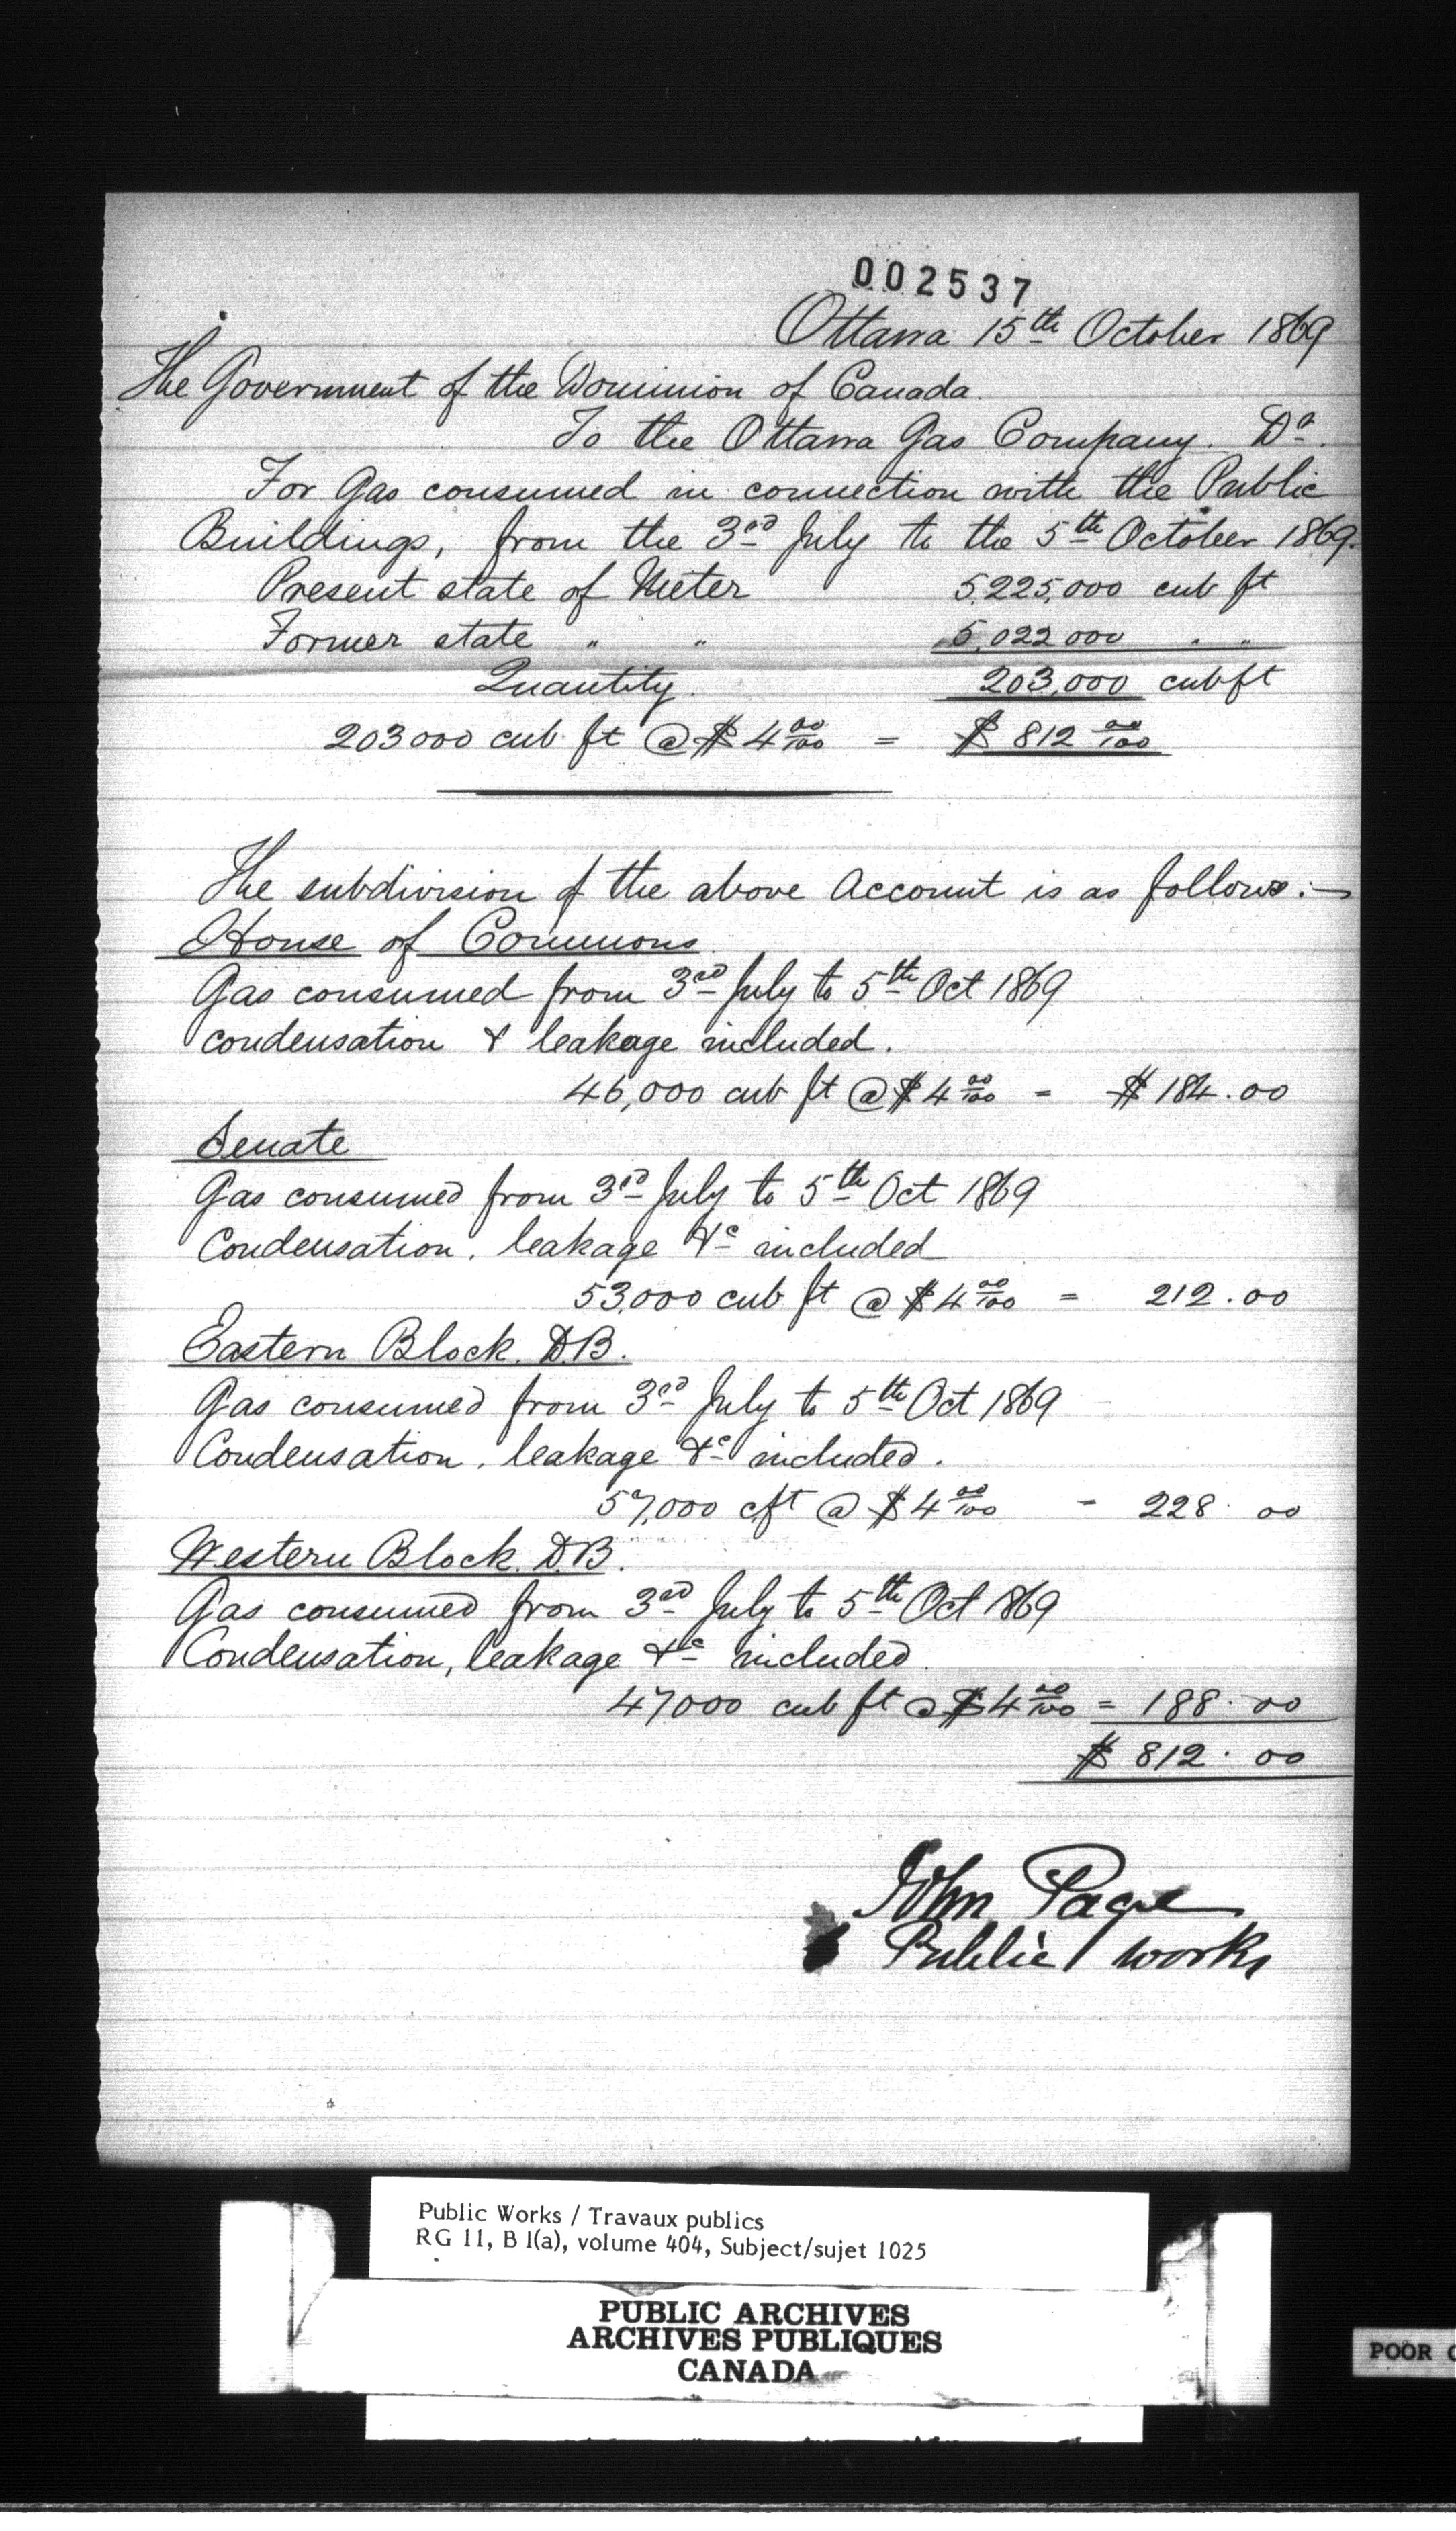 002537
Ottawa 15th October 1869
The Government of the Dominion of Canada.
To the Ottawa Gas Company. Dr.
For Gas consumed in connection with the Public
Buildings, from the 3rd July to the 5th October 1869.
Present state of Meter 5,225,000 cub ft
Former state " " 5,022 000 " "
Quantity. 203,000 cub ft
203000 cub. ft @ $4 00/100 = $812 00/100
The subdivision of the above Account is as follows:—
House of Commons
Gas consumed from 3rd July to 5th Oct 1869
condensation & leakage included.
46,000 cub ft @ $4 00/100 - $184.00
Senate
Gas consumed from 3rd July to 5th Oct 1869
Condensation, leakage &c included
53,000 cub ft @ $4 00/100 = 212.00
Eastern Block. D.B.
Gas consumed from 3rd July to 5th Oct 1869
Condensation, leakage &c included.
57,000 cft @ $4 00/100 - 228.00
Western Block. D.B.
Gas consumed from 3rd July to 5th Oct 1869
Condensation, leakage &c included
47000 cub ft @ $4 00/100 = 188.00
$812.00
John Page
Public Works
Public Works / Travaux publics
RG 11, B 1(a), volume 404, Subject/sujet 1025
PUBLIC ARCHIVES
ARCHIVES PUBLIQUES
CANADA
POOR